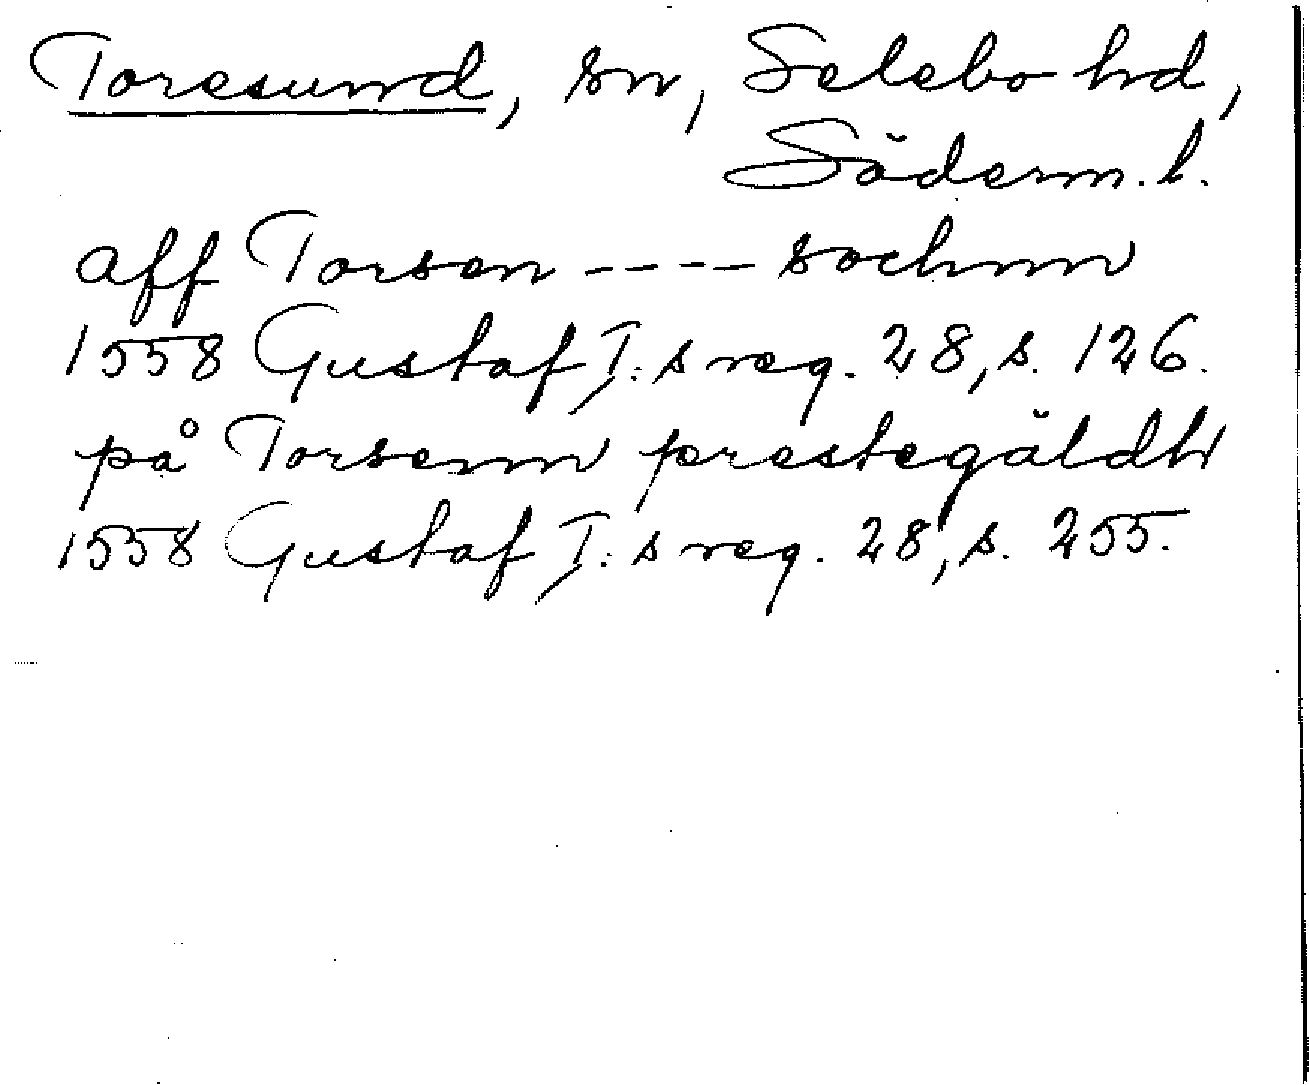 Toresund, sn, Selebo hd,
Söderm. l.
aff Torsen ---- sochnn
1558 Gustaf I:s reg. 28, s. 126.
på Torsenn prestegäldh
1558 Gustaf I:s reg. 28, s. 255.